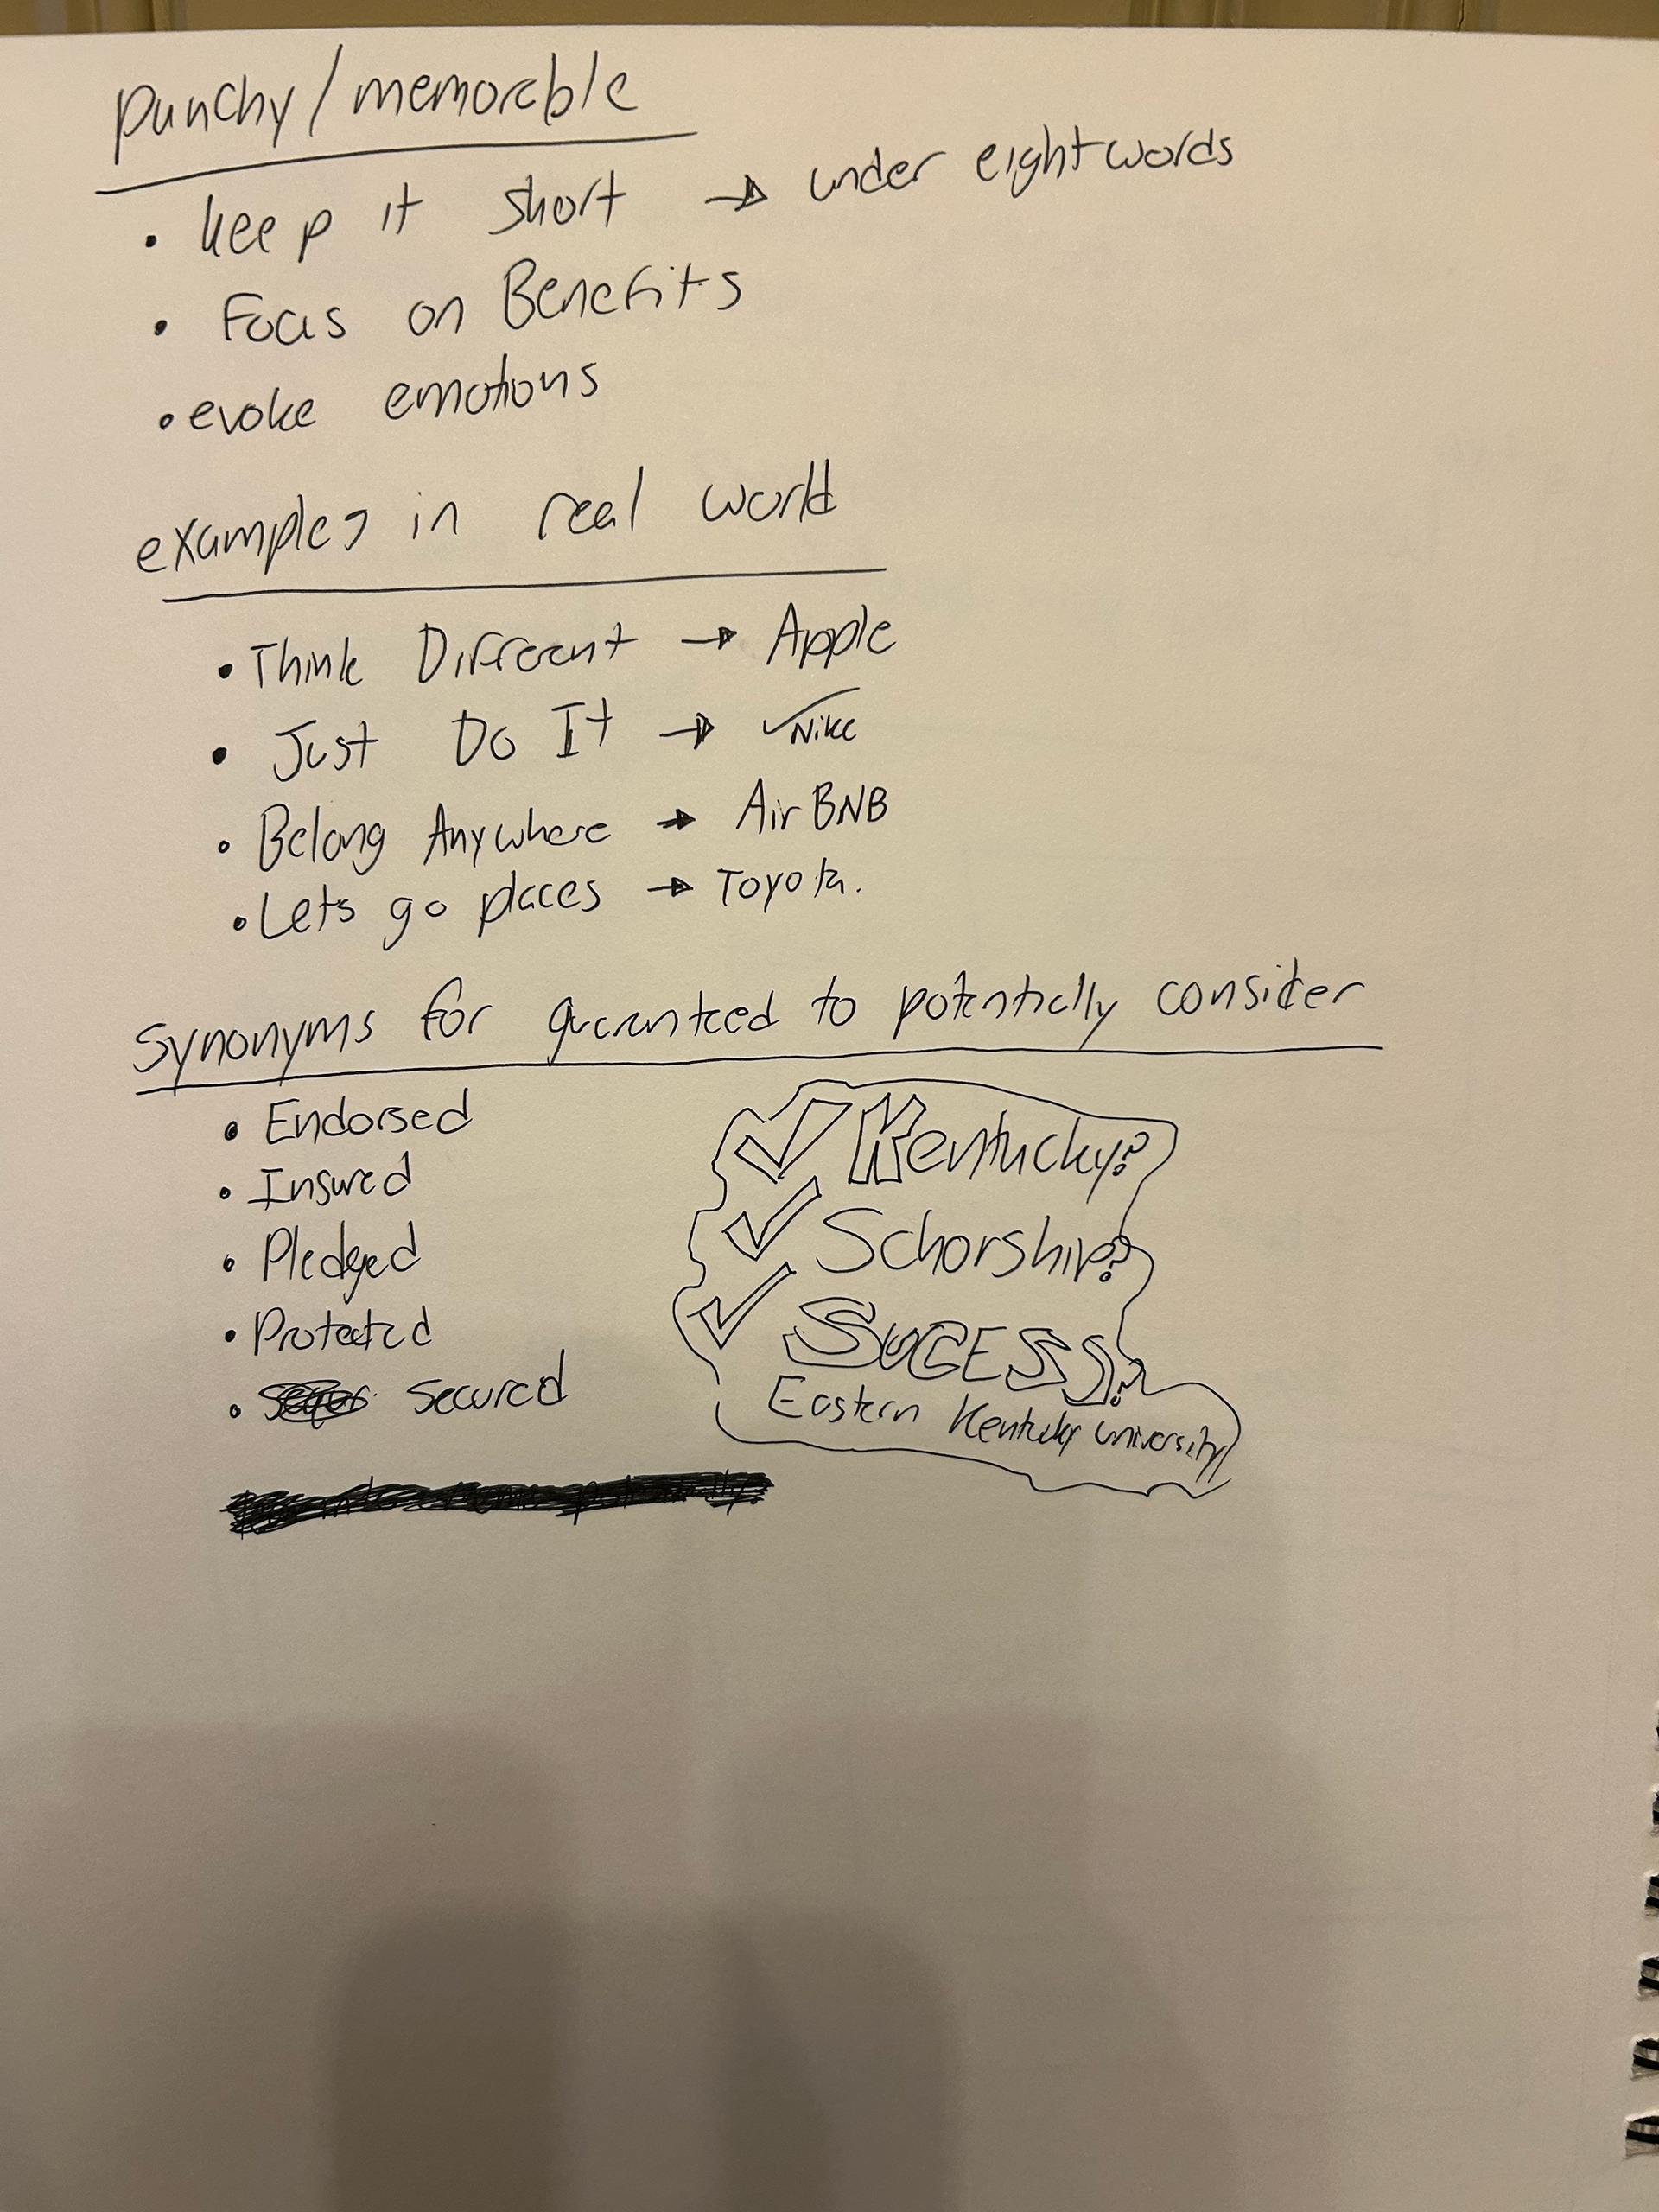 punchy/memorable
• keep it short → under eight words
• Focus on Benefits
• evoke emotions
examples in real world
• Think Different → Apple
• Just Do It → Nike
• Belong Anywhere → AirBNB
• Lets go places → Toyota.
Synonyms for guaranteed to potentially consider
• Endorsed
• Insured
• Pledged
• Protected
• secured
✓ Kentucky?
✓ Schorship?
✓ SUCESS?
Eastern Kentucky University